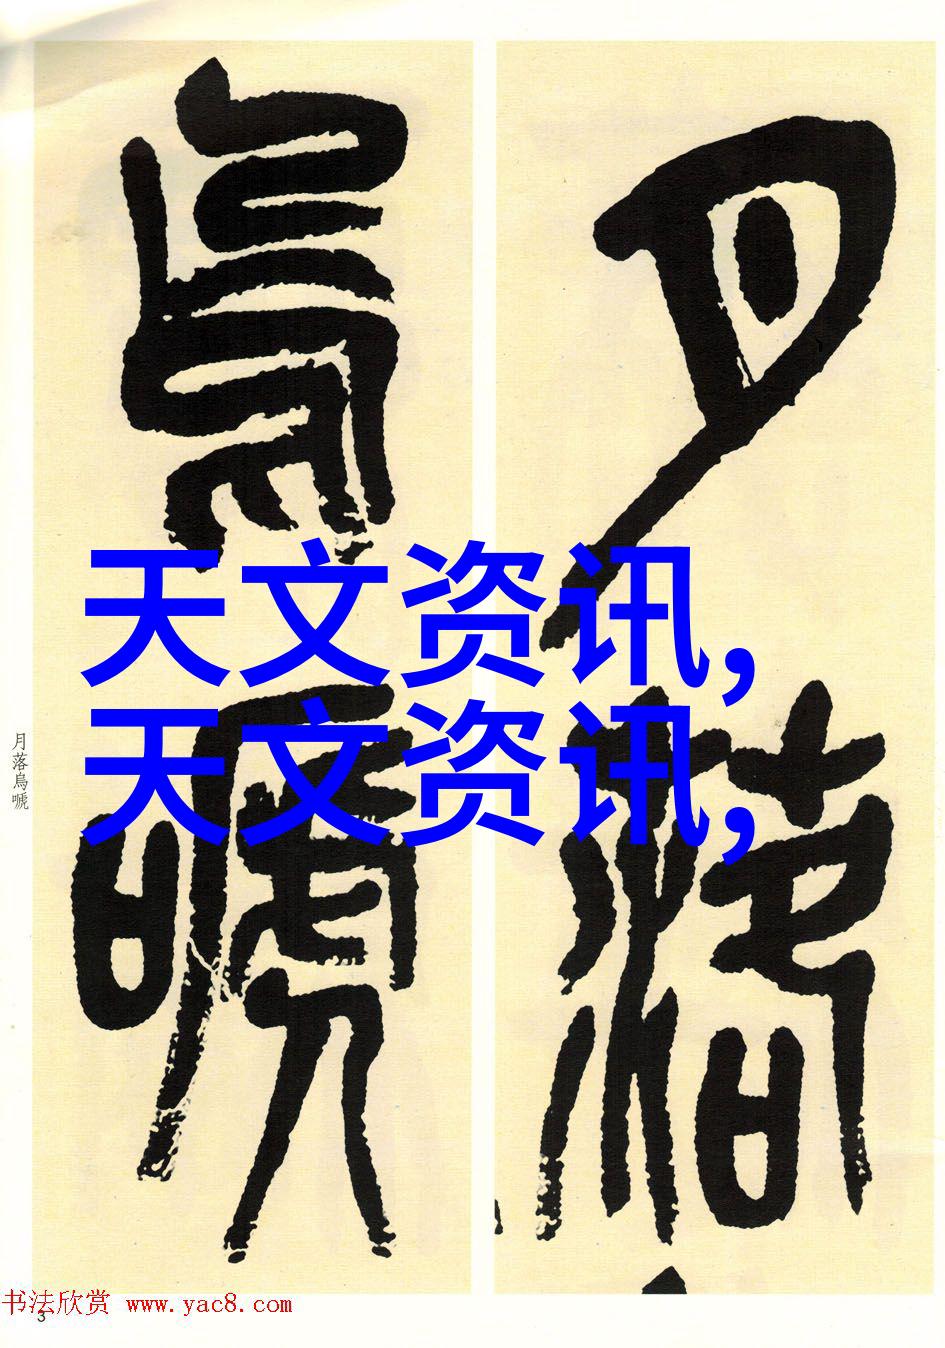 月落
烏嗁
天文资讯,
天文资讯,
月落烏嗁
书法欣赏 www.yac8.com
3